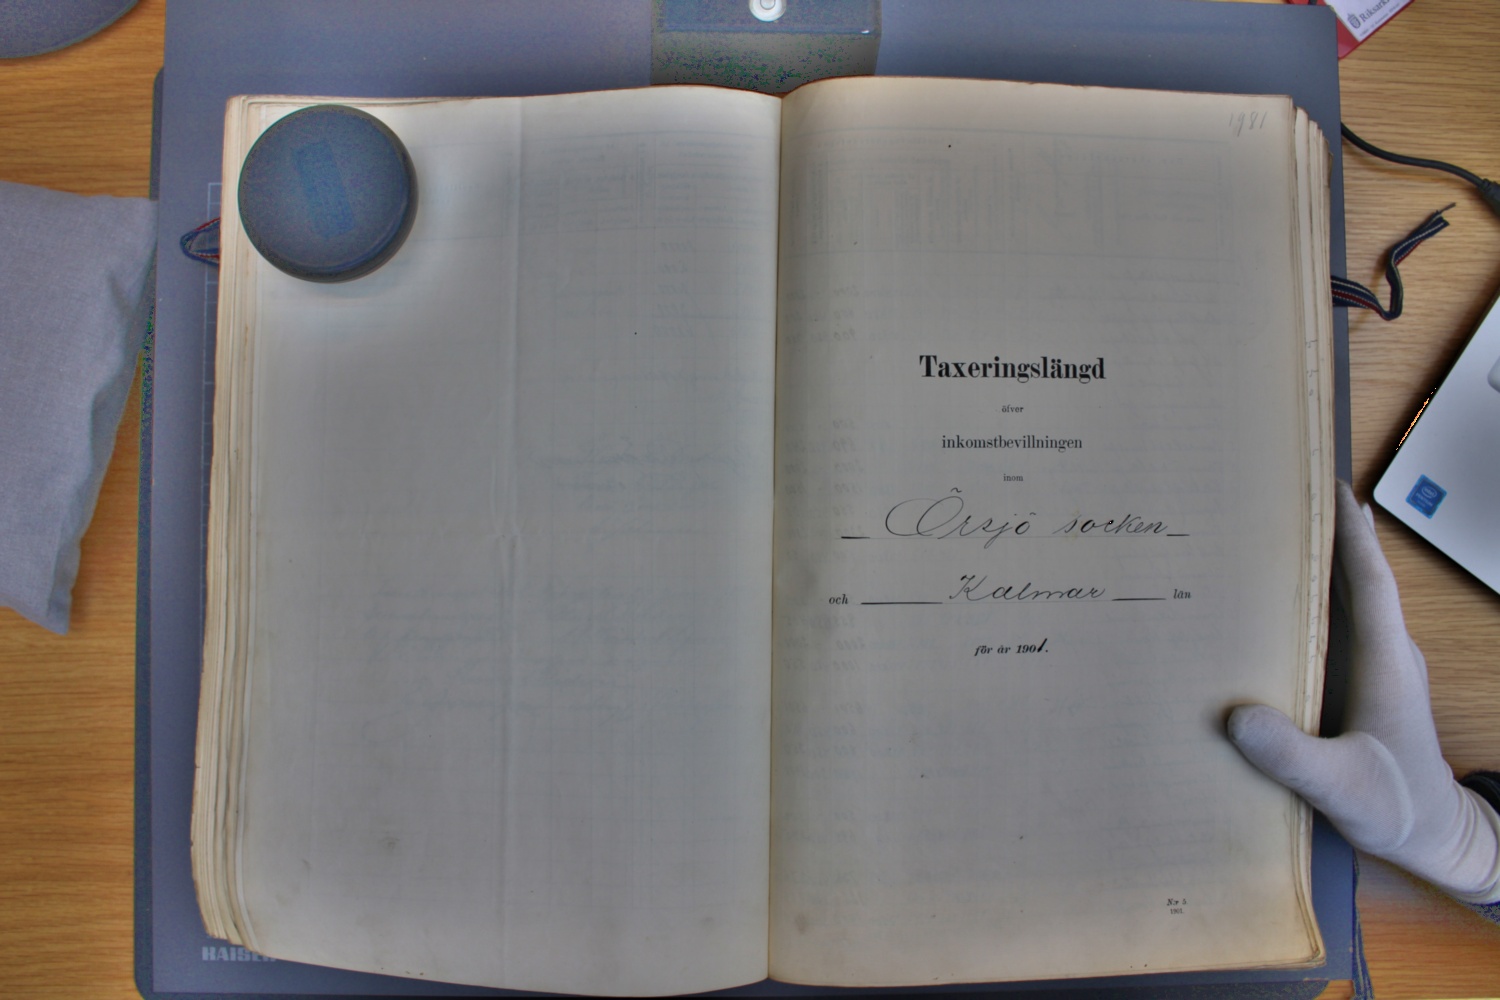 1981
Taxeringslängd
öfver
inkomstbevillningen
inom
Örsjö socken
och Kalmar län
för år 1901.
N:r 3.
1901.
KAISER